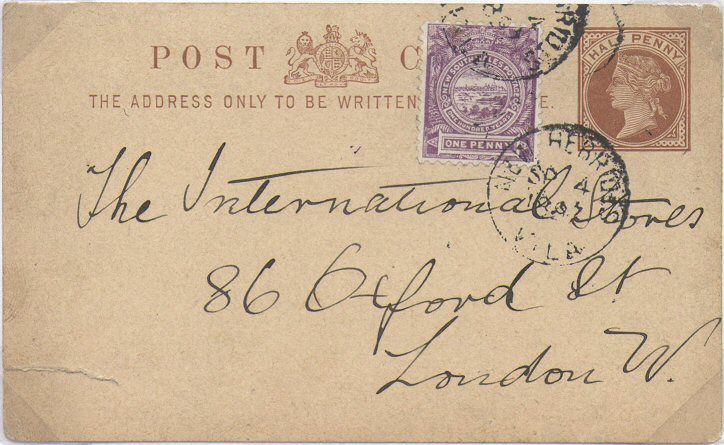 POST C
THE ADDRESS ONLY TO BE WRITTEN E.
HALF PENNY
NEW SOUTH WALES POSTAGE
ONE HUNDRED YEARS
ONE PENNY
NEW HEBRIDES
4
VILA
The International Stores
86 Oxford St
London W.